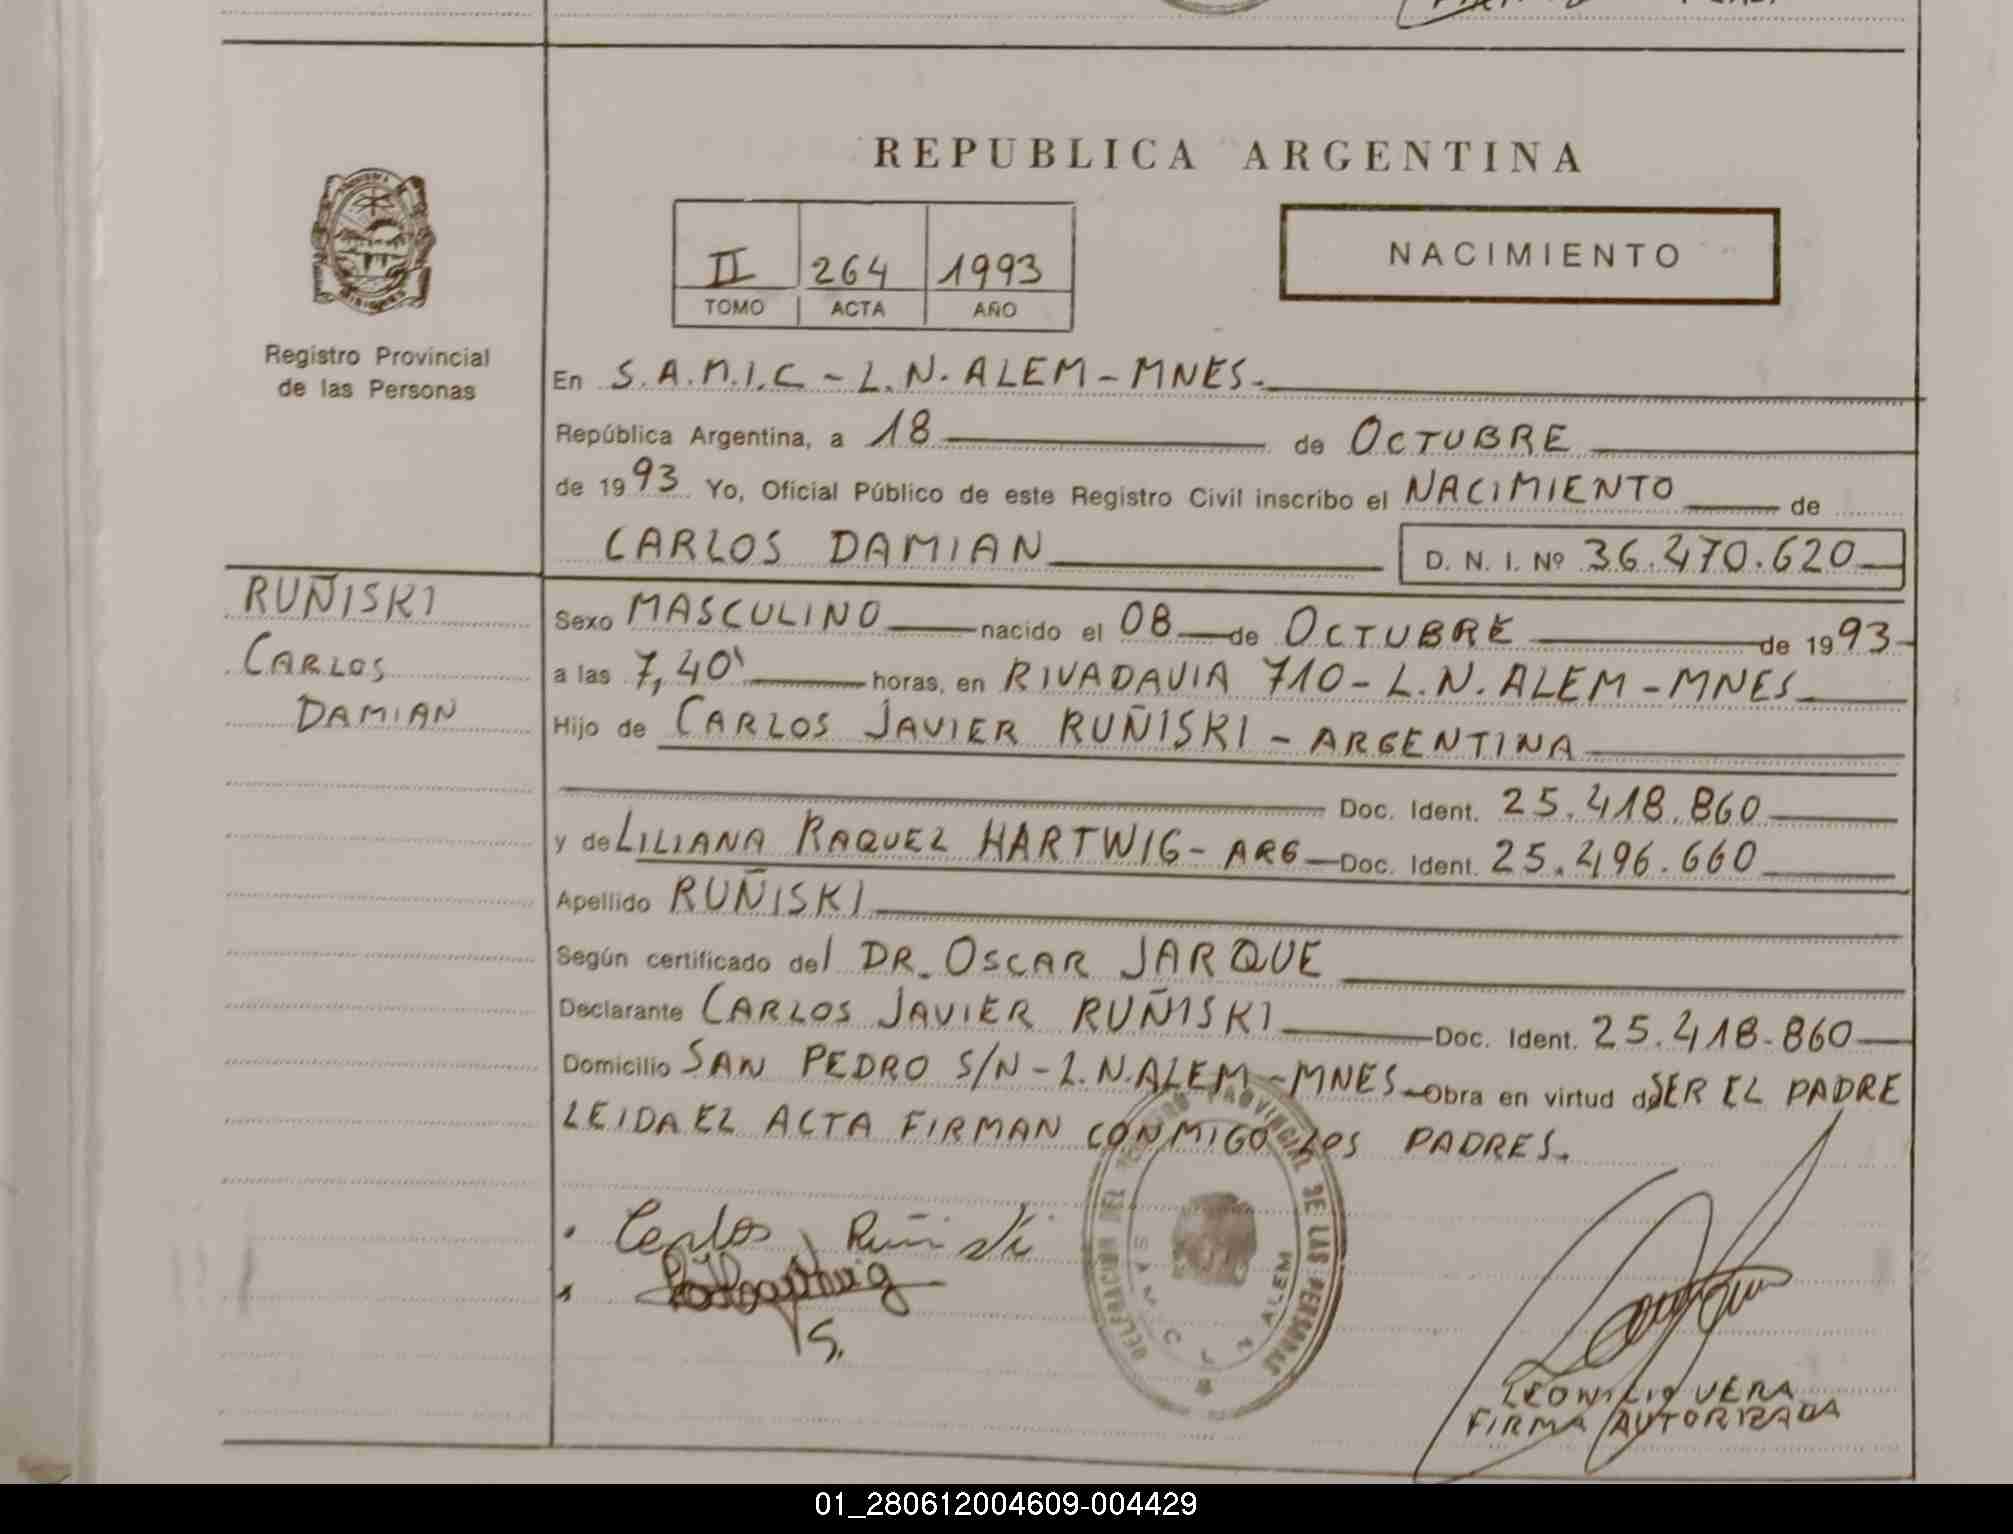 REPUBLICA ARGENTINA
II 264 1993
TOMO ACTA AÑO
NACIMIENTO
Registro Provincial
de las Personas
En S.A.M.I.C - L.N. ALEM - MNES.
República Argentina, a 18 de OCTUBRE
de 1993 Yo, Oficial Público de este Registro Civil inscribo el NACIMIENTO de
CARLOS DAMIAN D. N. I. Nº 36.470.620
RUÑISKI
CARLOS
DAMIAN
Sexo MASCULINO nacido el 08 de OCTUBRE de 1993
a las 7,40' horas, en RIVADAVIA 710 - L.N. ALEM - MNES
Hijo de CARLOS JAVIER RUÑISKI - ARGENTINA
Doc. Ident. 25.418.860
y de LILIANA RAQUEL HARTWIG - ARG Doc. Ident. 25.496.660
Apellido RUÑISKI
Según certificado del DR. OSCAR JARQUE
Declarante CARLOS JAVIER RUÑISKI Doc. Ident. 25.418.860
Domicilio SAN PEDRO S/N - L.N. ALEM - MNES Obra en virtud de SER EL PADRE
LEIDA EL ACTA FIRMAN CONMIGO LOS PADRES.
Carlos Ruñiski
S.
DELEGACION DEL REGISTRO PROVINCIAL DE LAS PERSONAS
S A M I C L N ALEM
VERA
FIRMA AUTORIZADA
01_280612004609-004429